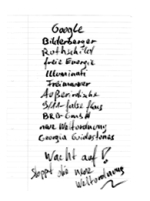 Google
Bilderberger
Rothschild
freie Energie
Illuminati
Freimaurer
Außerirdische
false flag
neue Weltordnung
Georgia Guidestones
Wacht auf!
Stoppt die neue
Weltordnung